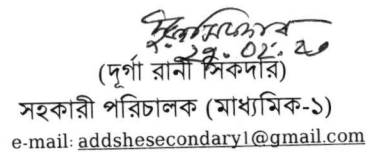 ২৯.০৮.২০
(দূর্গা রানী সিকদার)
সহকারী পরিচালক (মাধ্যমিক-১)
e-mail: addshesecondary1@gmail.com